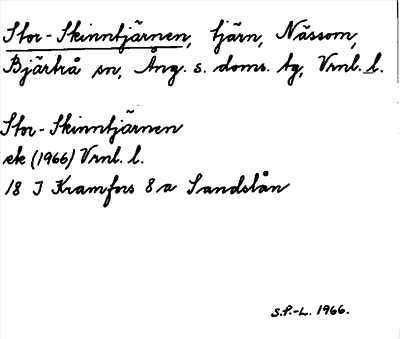 Stor-Skinntjärnen, tjärn, Nässom,
Bjärtrå sn, Ång. s. doms. tg, Vrnl. l.
Stor-Skinntjärnen
ek (1966) Vrnl. l.
18 I Kramfors 8 a Sandslån
S.P.-L. 1966.